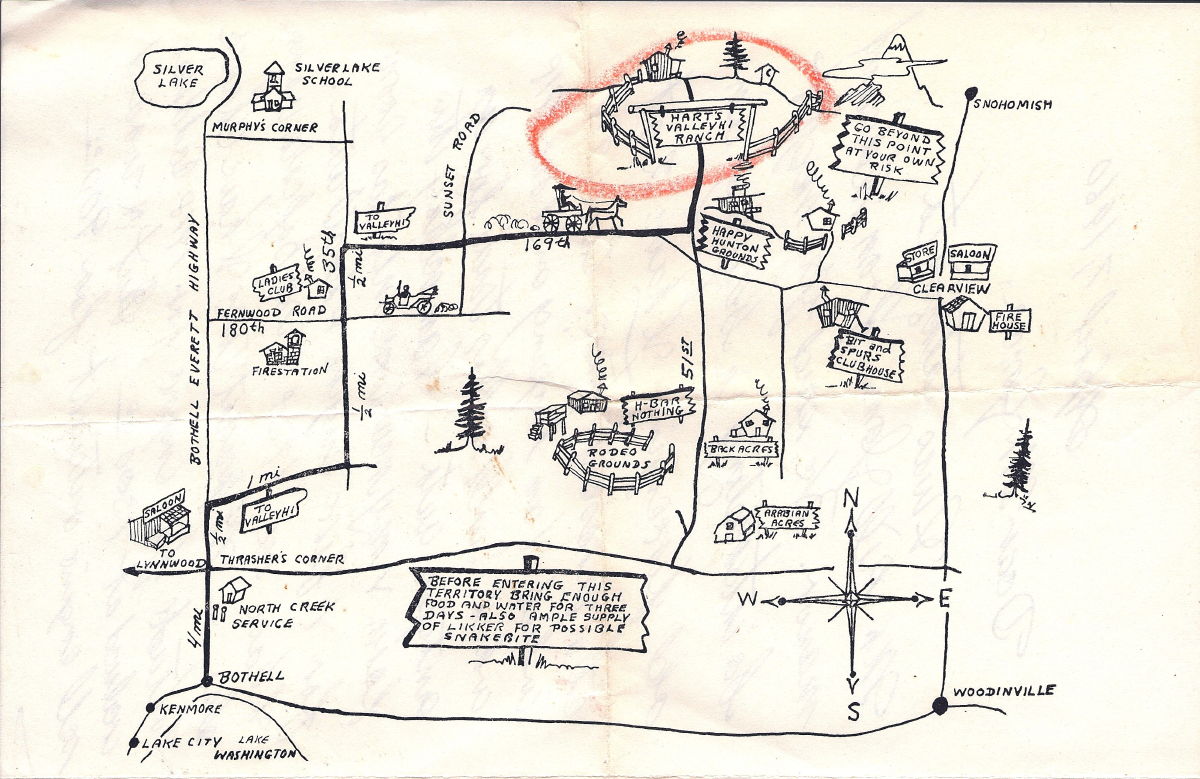 SILVER
LAKE
SILVER LAKE
SCHOOL
MURPHY'S CORNER
SUNSET ROAD
HART'S
VALLEYHI
RANCH
GO BEYOND
THIS POINT
AT YOUR OWN
RISK
SNOHOMISH
BOTHELL EVERETT HIGHWAY
35th
TO
VALLEYHI
169th
HAPPY
HUNTON
GROUNDS
STORE
SALOON
CLEARVIEW
FIRE
HOUSE
LADIES
CLUB
1/2 mi
FERNWOOD ROAD
180th
FIRESTATION
1/2 mi
BIT and
SPURS
CLUBHOUSE
51ST
H-BAR
NOTHING
RODEO
GROUNDS
BACK ACRES
ARABIAN
ACRES
1 mi
TO
VALLEYHI
SALOON
1/2 mi
TO
LYNNWOOD
THRASHER'S CORNER
NORTH CREEK
SERVICE
4 mi
BEFORE ENTERING THIS
TERRITORY BRING ENOUGH
FOOD AND WATER FOR THREE
DAYS - ALSO AMPLE SUPPLY
OF LIKKER FOR POSSIBLE
SNAKEBITE
N
W
E
S
BOTHELL
WOODINVILLE
KENMORE
LAKE CITY
LAKE
WASHINGTON